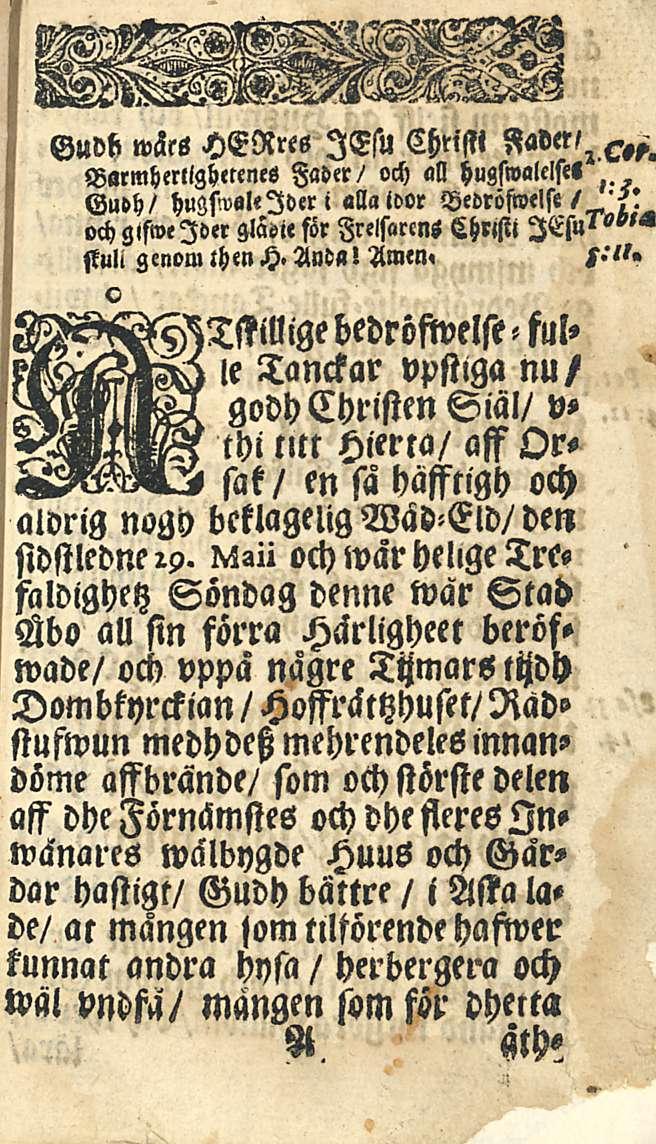 Gudh wårs HERres JEsu Christi Fader/
Barmhertighetenes Fader / och all hugswalelses
Gudh / hugswale Jder i alla idor Bedröfwelse /
och gifwe Jder glädie för Frelsarens Christi JEsu
skull genom then H. Anda! Amen.
2. Cor.
1:3.
Tobiæ
5:11.
ÅTskillige bedröfwelse-ful-
le Tanckar vpstiga nu /
godh Christen Siäl/ v-
thi titt Hierta/ aff Or-
sak / en så häfftigh och
aldrig nogh beklagelig Wåd-Eld/ den
sidstledne 29. Maii och wår helige Tre-
faldighetz Söndag denne wår Stad
Åbo all sin förra Härligheet beröf-
wade/ och vppå någre Tijmars tijdh
Dombkyrckian / Hoffrättzhuset/ Råd-
stufwun medh deß mehrendeles innan-
döme affbrände/ som och störste delen
aff dhe Förnämstes och dhe fleres In-
wånares wälbygde Huus och Går-
dar hastigt/ Gudh bättre / i Aska la-
de/ at mången som tilförende hafwer
kunnat andra hysa / herbergera och
wäl vndfå/ mången som för dhetta
A åth-